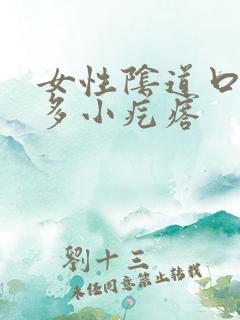 女性陰道口
多小疙瘩
劉十三
未经同意禁止转载